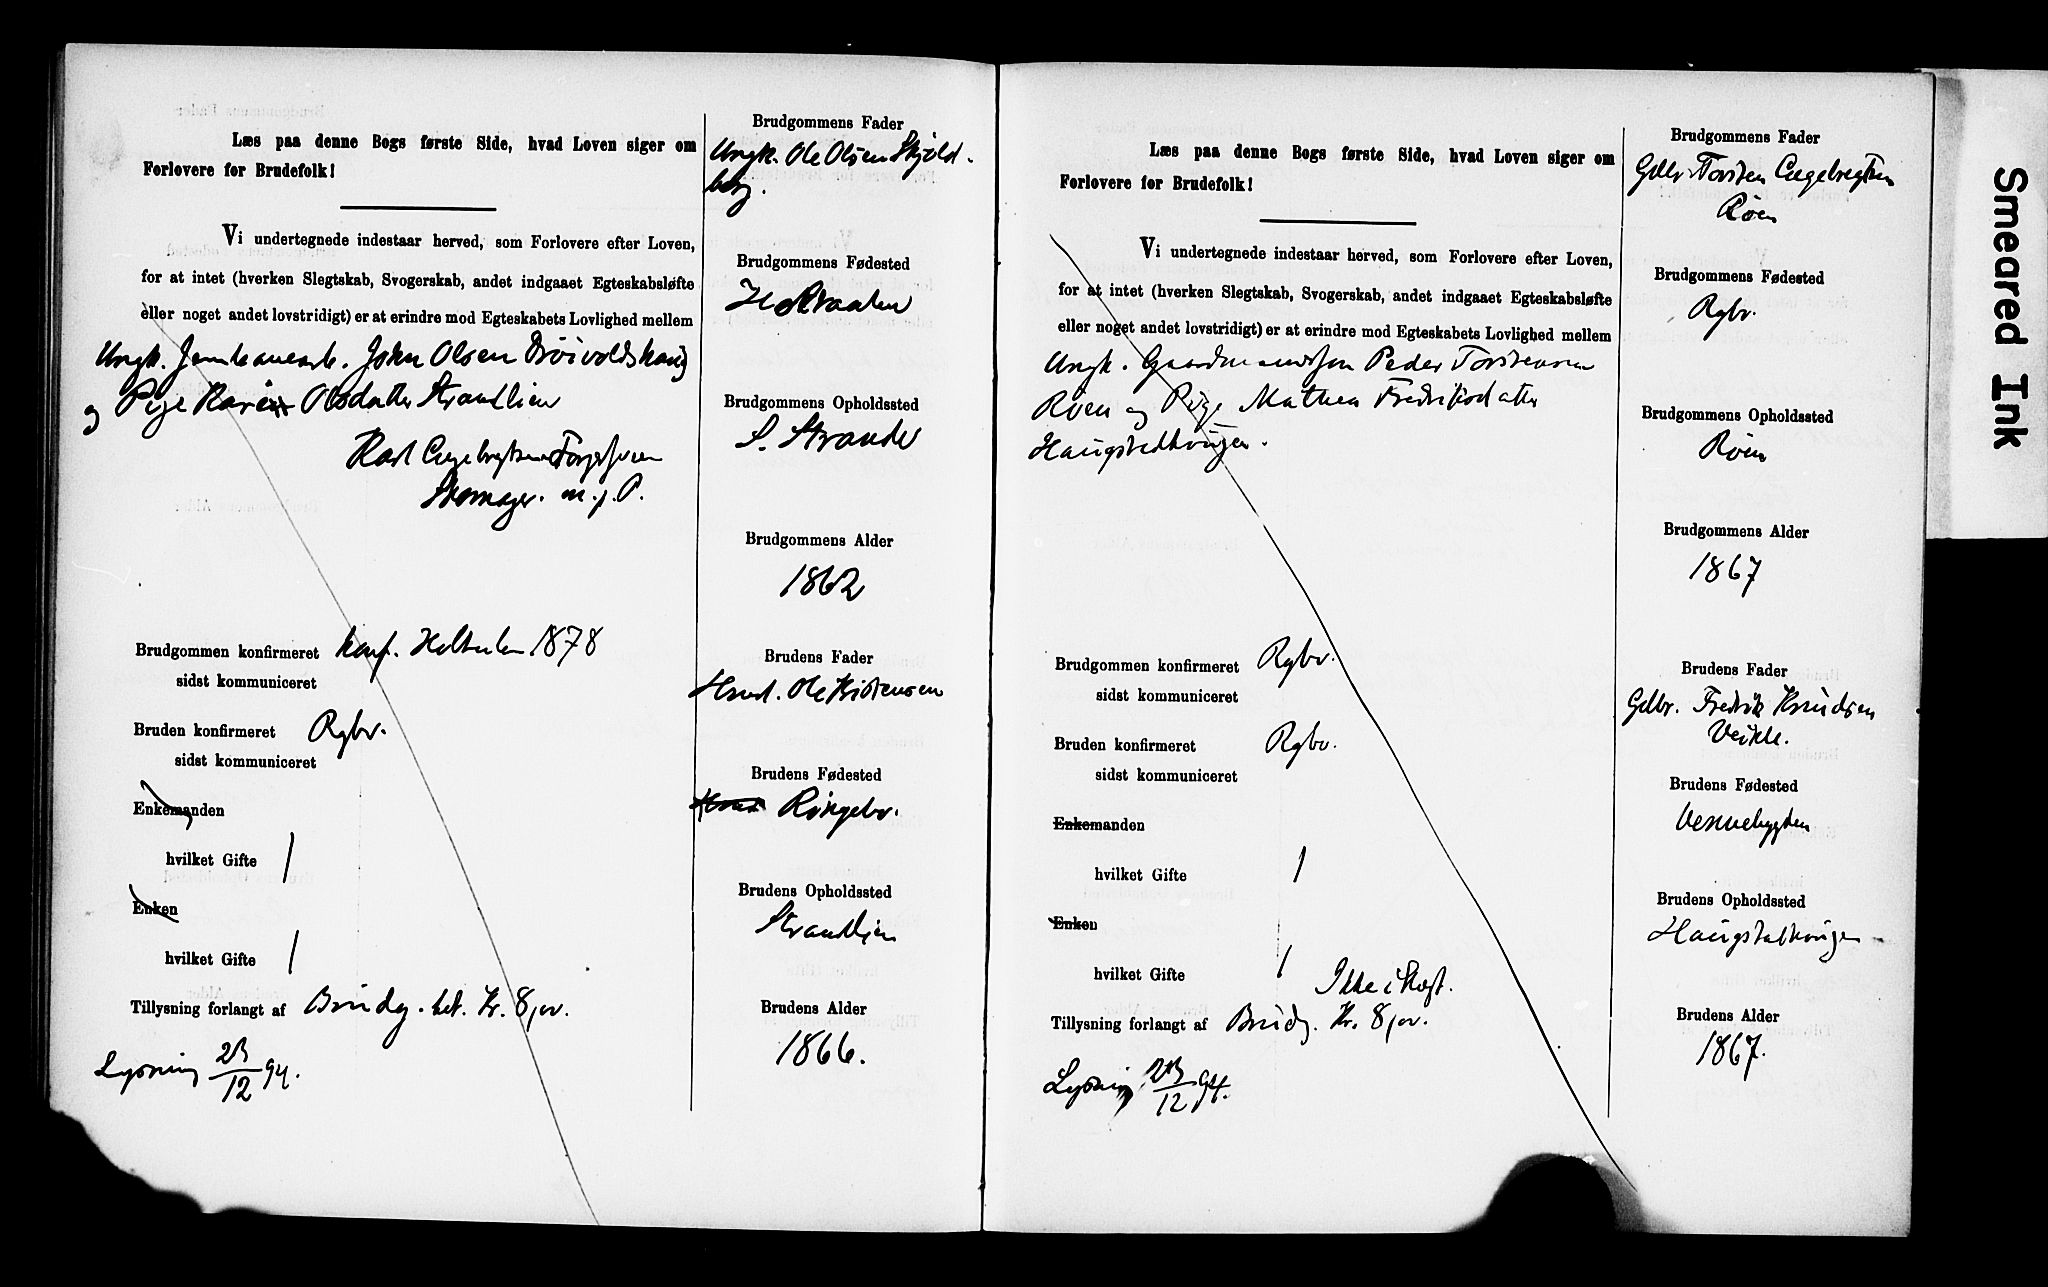 Læs paa denne Bogs første Side, hvad Loven siger om
Forlovere for Brudefolk!
Vi undertegnede indestaar herved, som Forlovere efter Loven,
for at intet (hverken Slegtskab, Svogerskab, andet indgaaet Egteskabsløfte
eller noget andet lovstridigt) er at erindre mod Egteskabets Lovlighed mellem
Ungk. John Olsen
og Pige Olsdatter Strandlien
Karl Engebregtsen
Skomager. m. p. P.
Brudgommen konfirmeret konf. Holtaalen 1878
sidst kommuniceret
Bruden konfirmeret Rgbr.
sidst kommuniceret
Enkemanden
hvilket Gifte 1
Enken
hvilket Gifte 1
Tillysning forlangt af Brudg. bet. Kr. 8,00.
Lysning 23/12 94.
Brudgommens Fader
Ungk. Ole Olsen Skjold-
berg.
Brudgommens Fødested
Brudgommens Opholdssted
S. Strande
Brudgommens Alder
1862
Brudens Fader
Husmd. Ole Kristensen
Brudens Fødested
Ringebu.
Brudens Opholdssted
Strandlien
Brudens Alder
1866.
Læs paa denne Bogs første Side, hvad Loven siger om
Forlovere for Brudefolk!
Vi undertegnede indestaar herved, som Forlovere efter Loven,
for at intet (hverken Slegtskab, Svogerskab, andet indgaaet Egteskabsløfte
eller noget andet lovstridigt) er at erindre mod Egteskabets Lovlighed mellem
Ungk. Gaardmandssøn Peder Torstensen
Røen og Pige Mathea Fredriksdatter
Haugstadkvigen.
Brudgommen konfirmeret Rgbr.
sidst kommuniceret
Bruden konfirmeret Rgbr.
sidst kommuniceret
Enkemanden
hvilket Gifte 1
Enken
hvilket Gifte 1
Ikke i Slægt.
Tillysning forlangt af Brudg. Kr. 8,00.
Lysning 23/12 94.
Brudgommens Fader
Gdbr. Torsten Engebregtsen
Røen
Brudgommens Fødested
Rgbr.
Brudgommens Opholdssted
Røen
Brudgommens Alder
1867
Brudens Fader
Gdbr. Fredrik Knudsen
Veikle.
Brudens Fødested
Vennebygden
Brudens Opholdssted
Haugstadkvigen
Brudens Alder
1867.
Smeared Ink